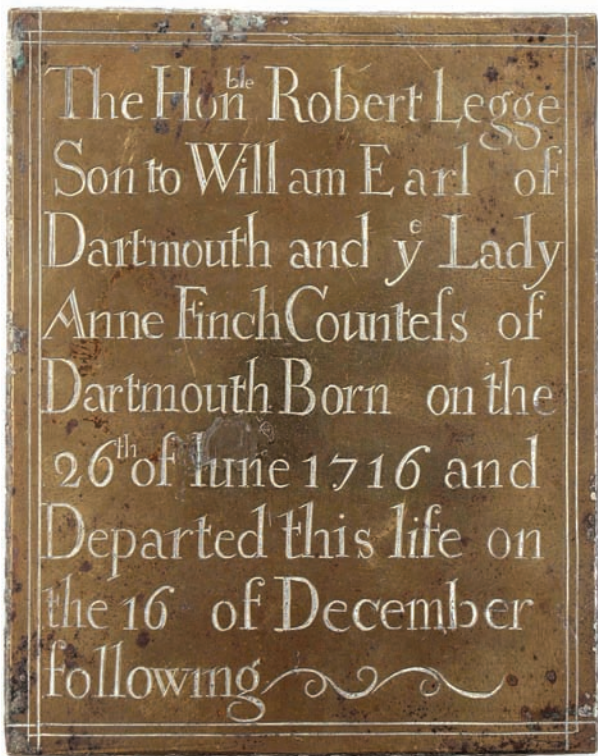 The Hon^ble Robert Legge
Son to Will am Earl of
Dartmouth and y^e Lady
Anne Finch Counteſs of
Dartmouth Born on the
26^th of Iune 1716 and
Departed this life on
the 16 of December
following